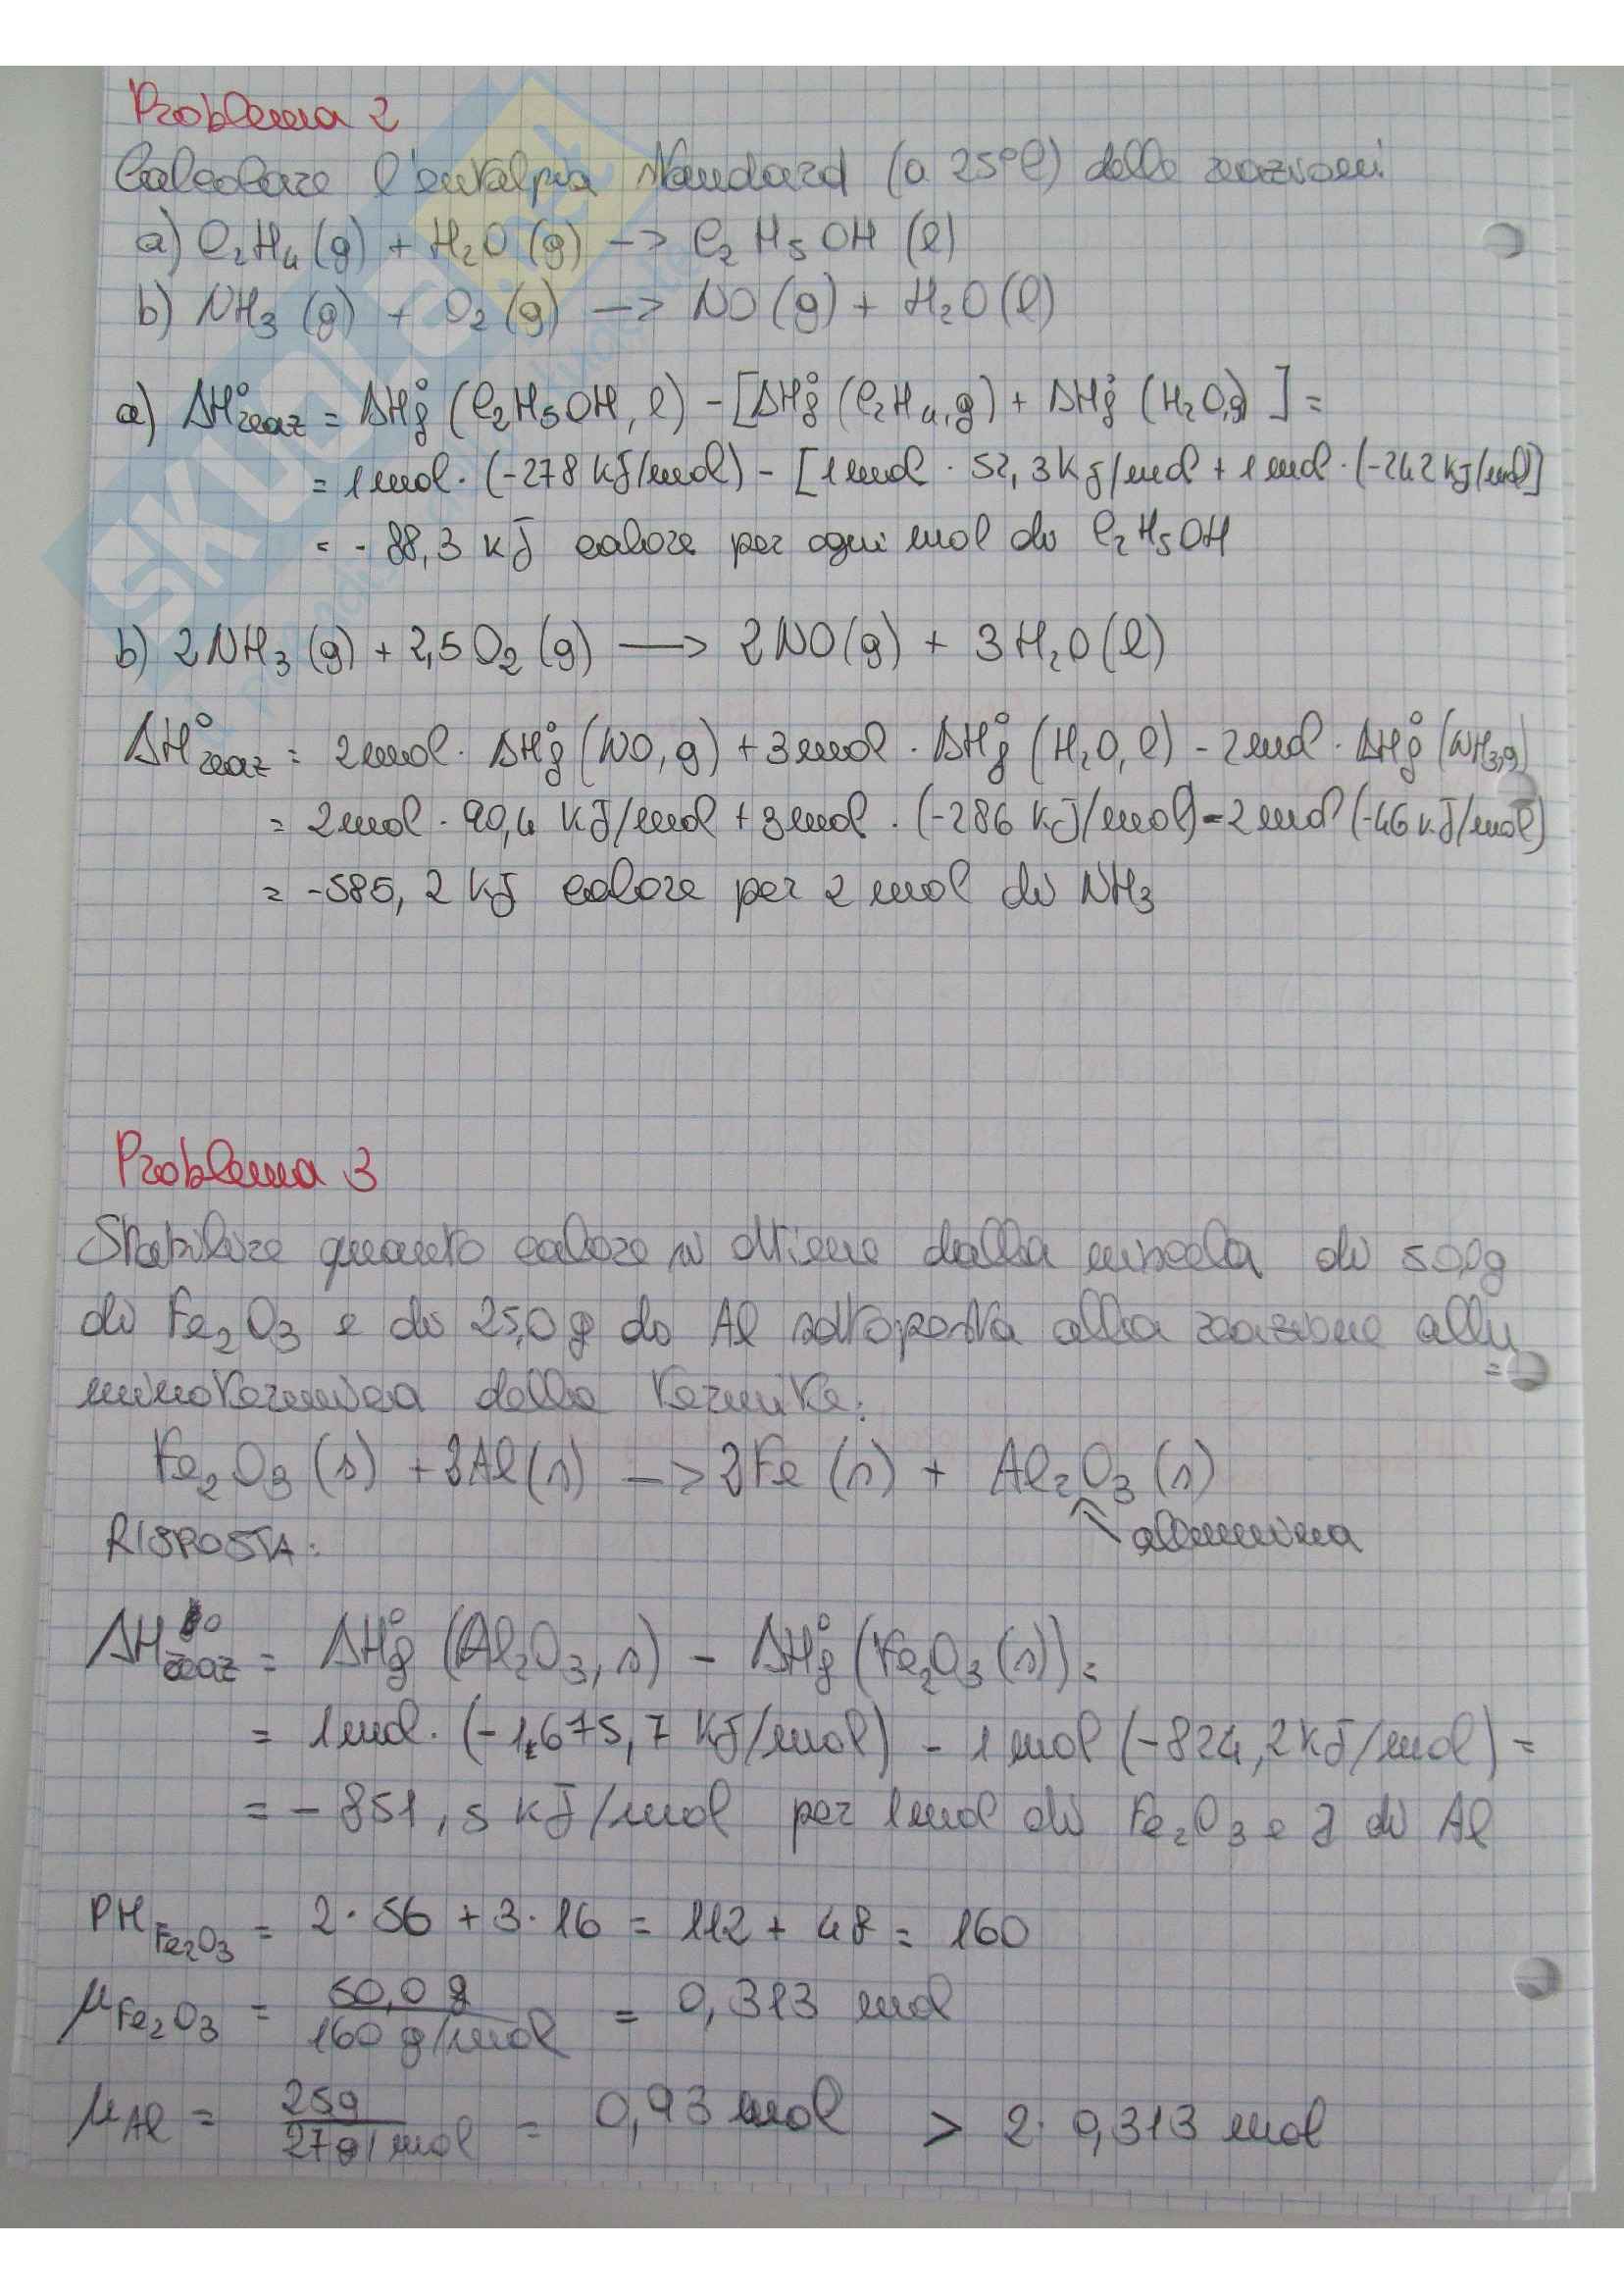 Problema 2
Calcolare l'entalpia standard (a 25°C) delle reazioni
a) C₂H₄ (g) + H₂O (g) -> C₂H₅OH (l)
b) NH₃ (g) + O₂ (g) -> NO (g) + H₂O (l)
a) ΔH°reaz = ΔHf° (C₂H₅OH, l) - [ΔHf° (C₂H₄, g) + ΔHf° (H₂O,g) ] =
= 1 mol · (-278 kJ/mol) - [1 mol · 52,3 kJ/mol + 1 mol · (-242 kJ/mol]
= - 88,3 kJ calore per ogni mol di C₂H₅OH
b) 2NH₃ (g) + 2,5 O₂ (g) —> 2NO (g) + 3H₂O (l)
ΔH°reaz = 2mol · ΔHf° (NO, g) + 3mol · ΔHf° (H₂O, l) - 2mol · ΔHf° (NH₃,g)
= 2mol · 90,4 kJ/mol + 3mol · (-286 kJ/mol) - 2mol (-46 kJ/mol)
= -585,2 kJ calore per 2 mol di NH₃
Problema 3
Stabilire quanto calore si ottiene dalla miscela di 50,0g
di Fe₂O₃ e di 25,0 g di Al sottoposta alla reazione allu
minotermica della termite:
Fe₂O₃ (s) + 2Al (s) —> 2Fe (s) + Al₂O₃ (s)
allumina
RISPOSTA:
ΔH°reaz = ΔHf° (Al₂O₃, s) - ΔHf° (Fe₂O₃ (s)) =
= 1mol · (-1.675,7 kJ/mol) - 1 mol (-824,2 kJ/mol) =
= - 851,5 kJ/mol per 1mol di Fe₂O₃ e 2 di Al
PM Fe₂O₃ = 2 · 56 + 3 · 16 = 112 + 48 = 160
μ Fe₂O₃ = 50,0 g / 160 g/mol = 0,313 mol
μ Al = 25g / 27g/mol = 0,93 mol > 2 · 0,313 mol